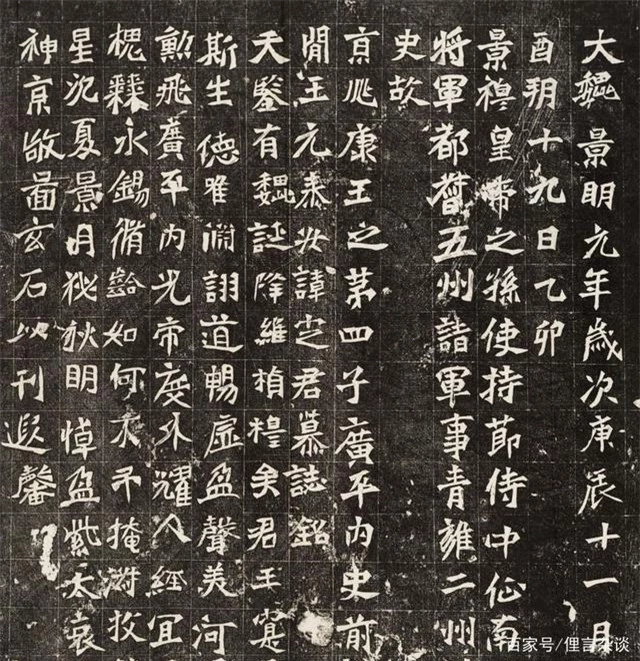 大魏景明元年歲次庚辰十一月
酉朔十九日乙卯
景穆皇帝之孫使持節侍中征南
將軍都督五州諸軍事青雍二州
史故
京兆康王之第四子廣平內史前
閒王元泰安諱定君墓誌銘
天鑒有魏誕降維楨穆矣君王寔
斯生德唯淵詡道暢虛盈聲美河
勳飛廣平內光帝度外耀人經宜
槐永錫脩齡如何不弔掩
星沉夏景月祕秋明悼盈紫太哀
神京敬啚玄石以刊遐馨
百家号/俚言杂谈